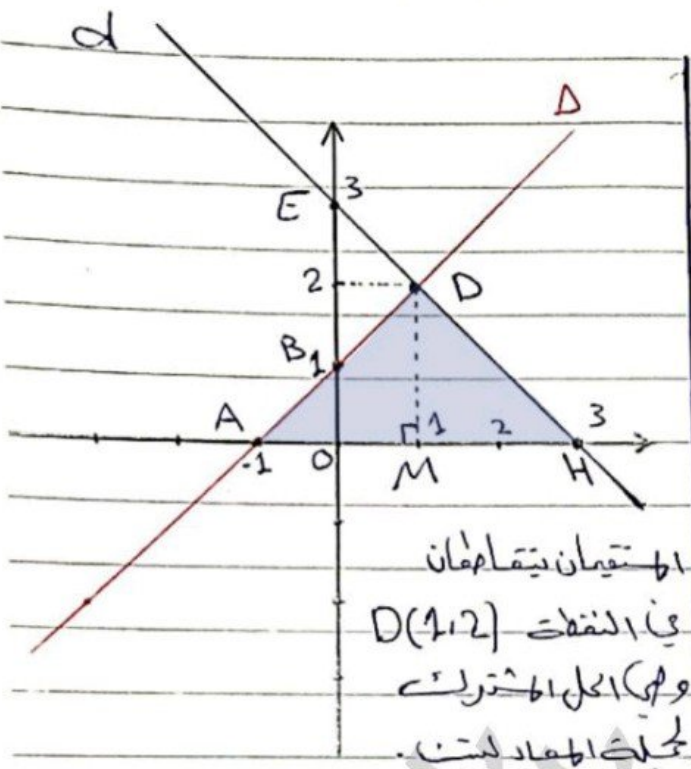 d
Δ
E 3
2 D
B 1
A 1 2 3
-1 O M H
المستقيمان يتقاطعان
في النقطة D(1,2)
وهي الحل المشترك
لجملة المعادلتين.